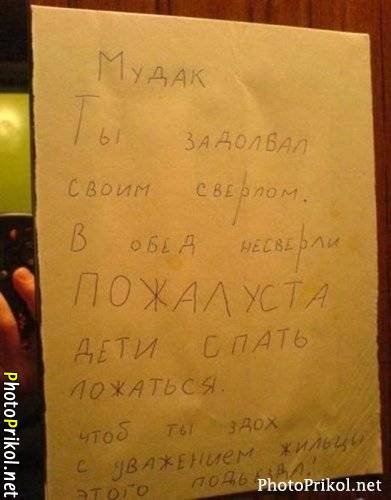 Мудак
Ты задолбал
своим сверлом.
В обед несверли
ПОЖАЛУСТА
дети спать
ложаться.
чтоб ты здох
с уважением жильцы
этого подьезда!
PhotoPrikol.net
PhotoPrikol.net